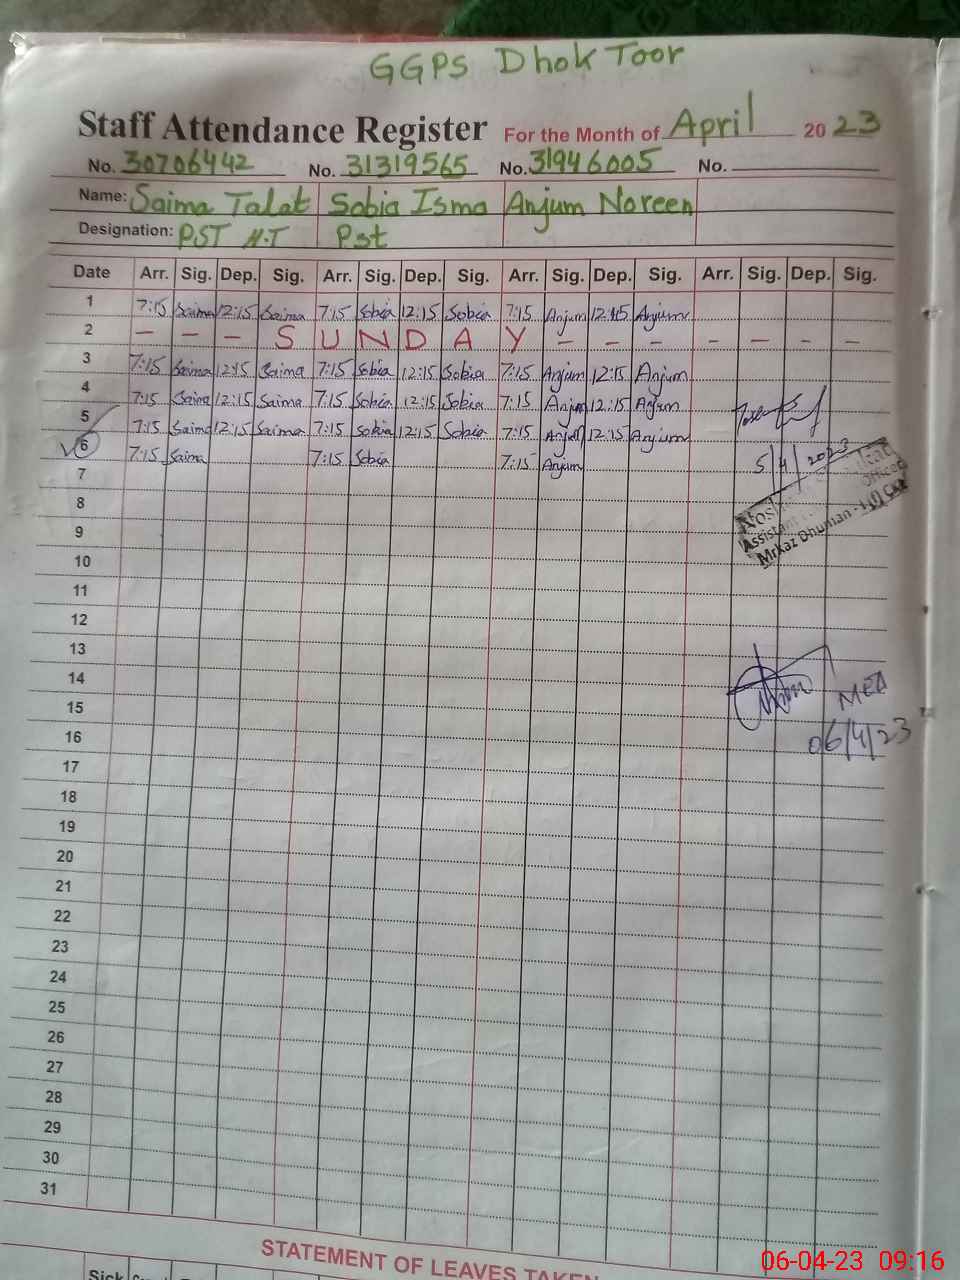 GGPS Dhok Toor
Staff Attendance Register For the Month of April 2023
No. 30706442 No. 31319565 No. 31946005 No.
Name: Saima Talat Sobia Isma Anjum Noreen
Designation: PST H.T Pst
Date Arr. Sig. Dep. Sig. Arr. Sig. Dep. Sig. Arr. Sig. Dep. Sig. Arr. Sig. Dep. Sig.
1 7:15 Saima 12:15 Saima 7:15 Sobia 12:15 Sobia 7:15 Anjum 12:15 Anjum
2 - - - S U N D A Y - - - - - - -
3 7:15 Saima 12:15 Saima 7:15 Sobia 12:15 Sobia 7:15 Anjum 12:15 Anjum
4 7:15 Saima 12:15 Saima 7:15 Sobia 12:15 Sobia 7:15 Anjum 12:15 Anjum
5 7:15 Saima 12:15 Saima 7:15 Sobia 12:15 Sobia 7:15 Anjum 12:15 Anjum
6 7:15 Saima 7:15 Sobia 7:15 Anjum
5/4/2023
7
8
Assistant
Mrkaz Dhuman
9
10
11
12
13
14
MEA
15
06/4/23
16
17
18
19
20
21
22
23
24
25
26
27
28
29
30
31
STATEMENT OF LEAVES TAKEN
Sick
06-04-23 09:16